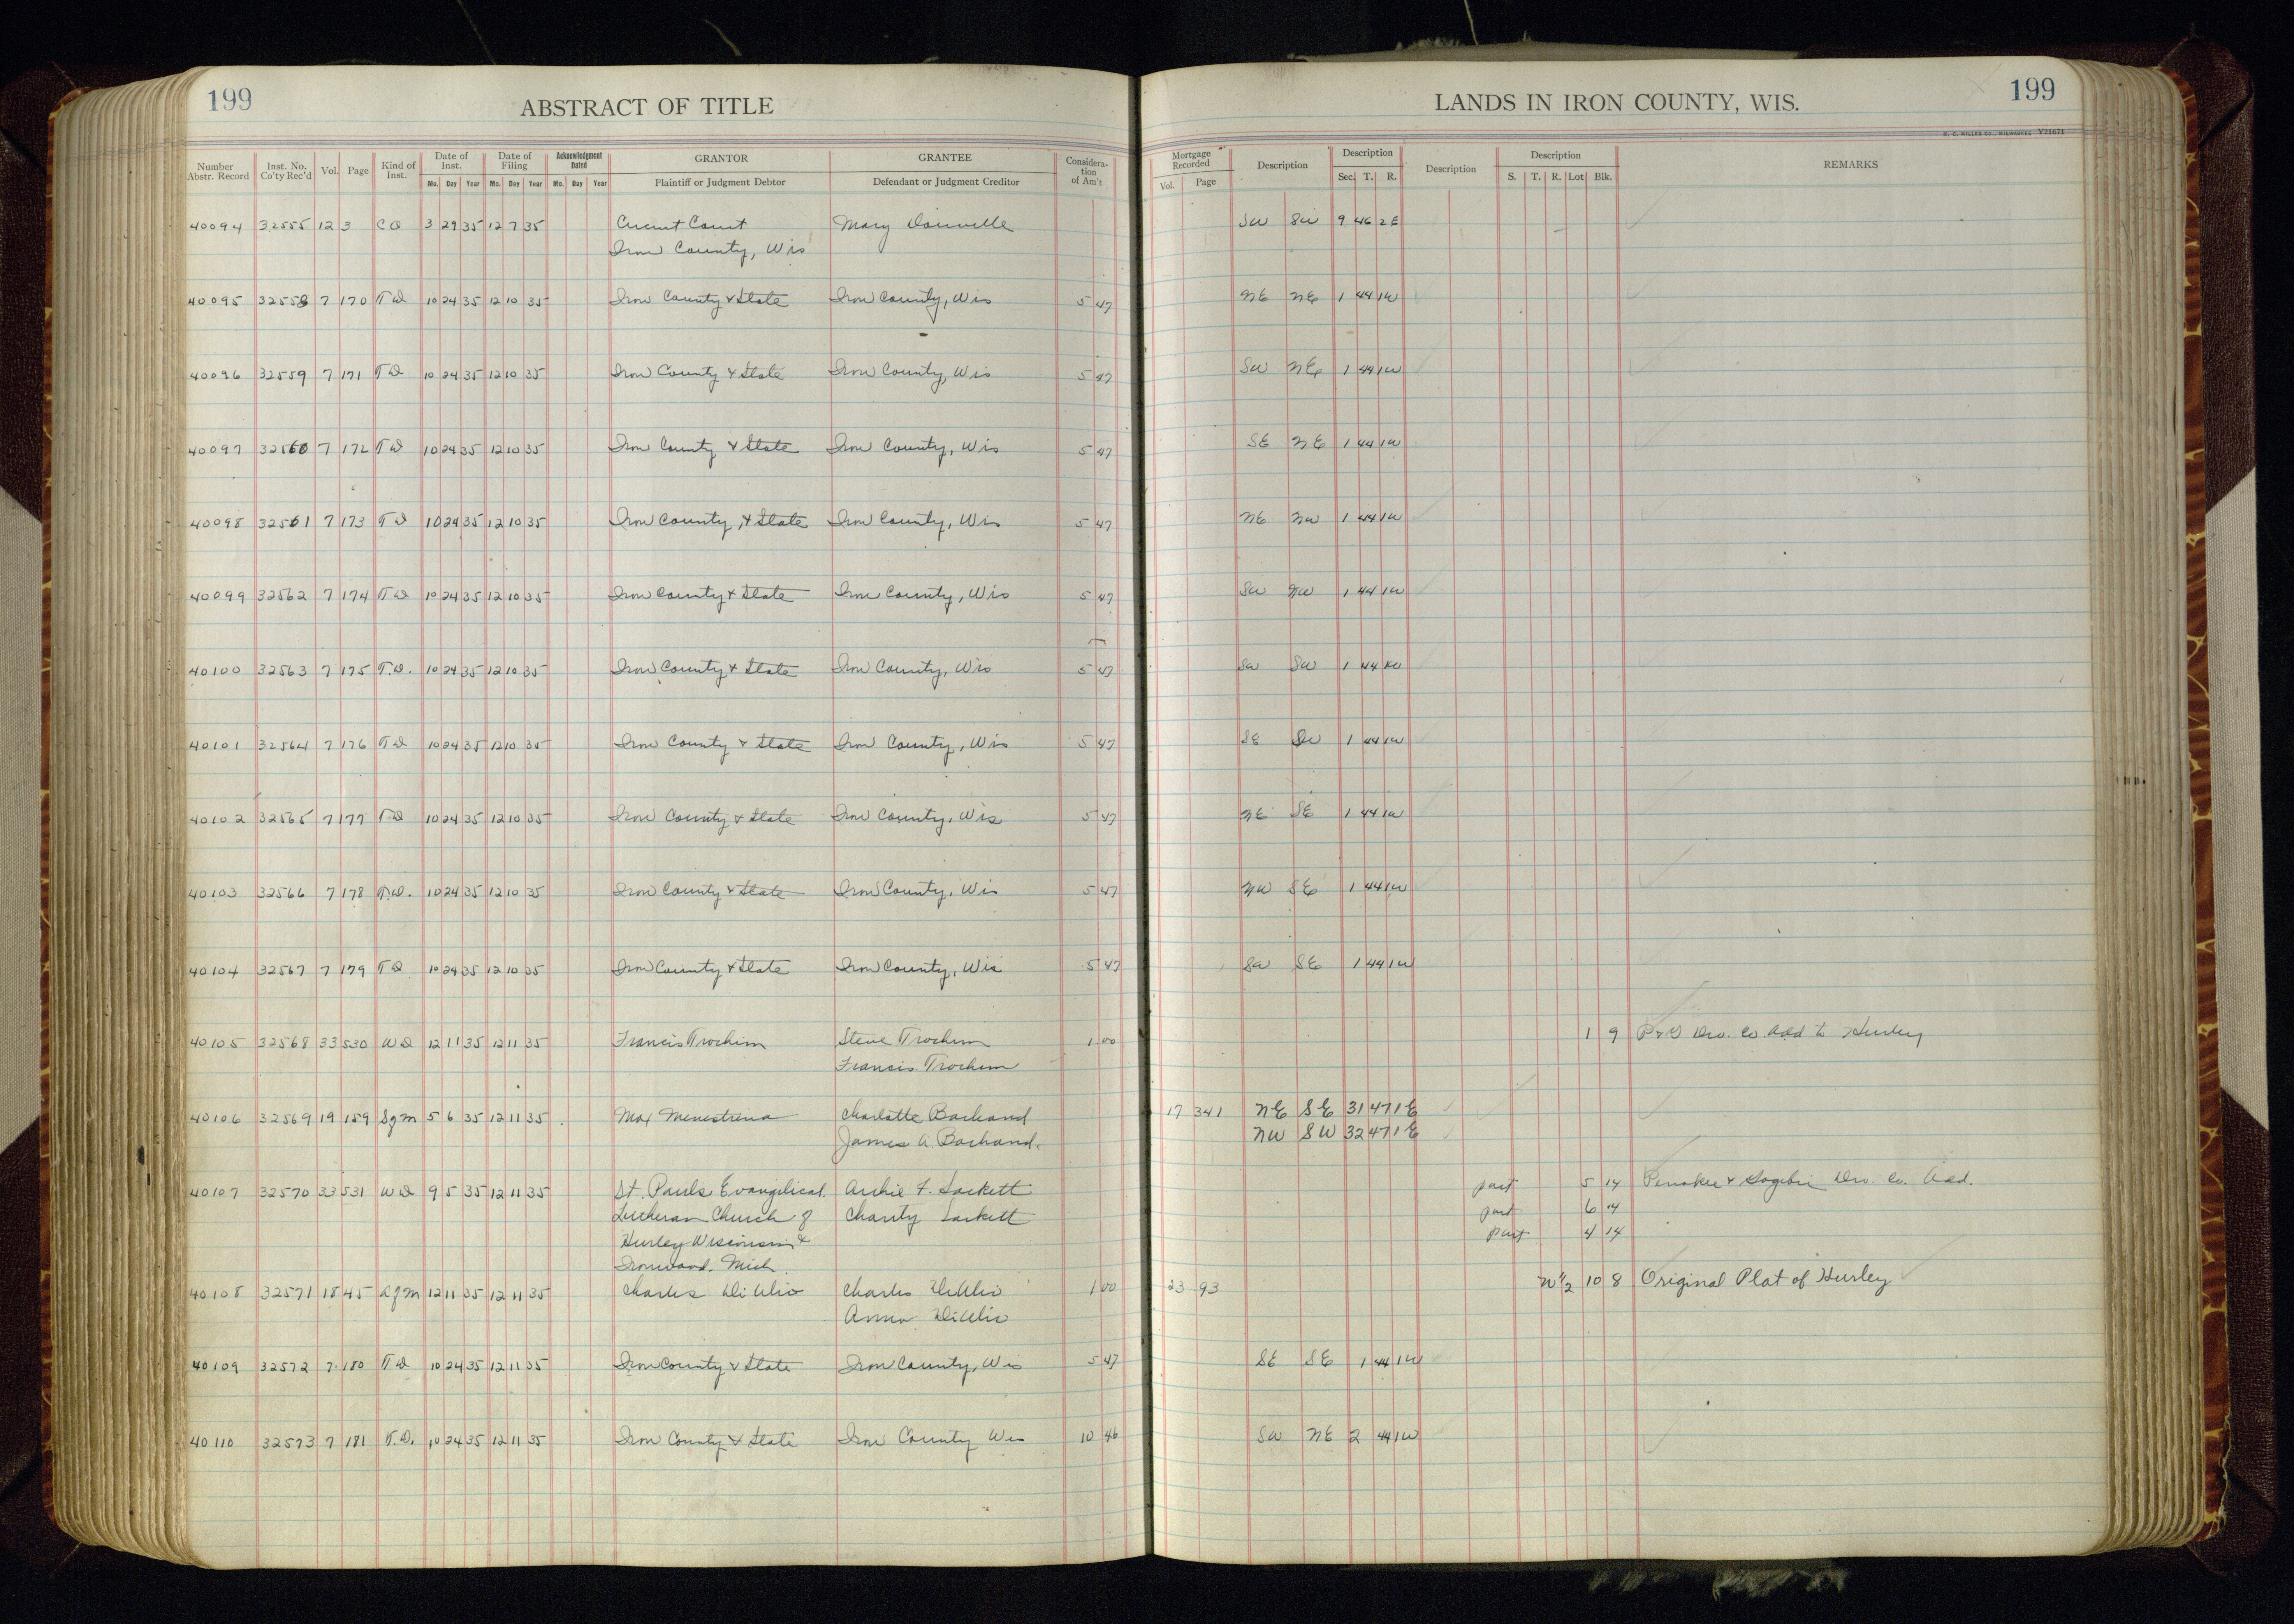 199
ABSTRACT OF TITLE
LANDS IN IRON COUNTY, WIS.
199
H. C. MILLER CO., MILWAUKEE Y21671
Number Abstr. Record | Inst. No. Co'ty Rec'd | Vol. | Page | Kind of Inst. | Date of Inst. Mo. Day Year | Date of Filing Mo. Day Year | Acknowledgment Dated Mo. Day Year | GRANTOR Plaintiff or Judgment Debtor | GRANTEE Defendant or Judgment Creditor | Considera-tion of Am't | Mortgage Recorded Vol. Page | Description | Description Sec. T. R. | Description | Description S. T. R. Lot Blk. | REMARKS
40094 32555 12 3 CO 3 29 35 12 7 35 Circuit Court Mary SW SW 9 46 2E
Iron County, Wis
40095 32558 7 170 TD 10 24 35 12 10 35 Iron County & State Iron County, Wis 5 47 NE NE 1 44 1W
40096 32559 7 171 TD 10 24 35 12 10 35 Iron County & State Iron County, Wis 5 47 SW NE 1 44 1W
40097 32560 7 172 TD 10 24 35 12 10 35 Iron County & State Iron County, Wis 5 47 SE NE 1 44 1W
40098 32561 7 173 TD 10 24 35 12 10 35 Iron County, & State Iron County, Wis 5 47 NE NW 1 44 1W
40099 32562 7 174 TD 10 24 35 12 10 35 Iron County & State Iron County, Wis 5 47 SW NW 1 44 1W
40100 32563 7 175 T.D. 10 24 35 12 10 35 Iron County & State Iron County, Wis 5 47 SW SW 1 44 1W
40101 32564 7 176 TD 10 24 35 12 10 35 Iron County & State Iron County, Wis 5 47 SE SW 1 44 1W
40102 32565 7 177 TD 10 24 35 12 10 35 Iron County & State Iron County, Wis 5 47 NE SE 1 44 1W
40103 32566 7 178 T.D. 10 24 35 12 10 35 Iron County & State Iron County, Wis 5 47 NW SE 1 44 1W
40104 32567 7 179 TD 10 24 35 12 10 35 Iron County & State Iron County, Wis 5 47 SW SE 1 44 1W
40105 32568 33 530 WD 12 11 35 12 11 35 Francis Trochim Steve Trochim 1 00 1 9 P & G Dev. Co. Add to Hurley
Francis Trochim
40106 32569 19 159 Sgm 5 6 35 12 11 35 Max Menestrina Charlotte Bachand 17 341 NE SE 31 47 1E
James A. Bachand. NW SW 32 47 1E
40107 32570 33 531 WD 9 5 35 12 11 35 St. Pauls Evangilical Archie F. Sackett part 5 14 Penokee & Gogebic Dev. Co. Add.
Lutheran Church of Charity Sackett part 6 14
Hurley Wisconsin & part 4 14
Ironwood. Mich.
40108 32571 18 45 Agm 12 11 35 12 11 35 Charles DiUlio Charles DiUlio 1 00 23 93 N 1/2 10 8 Original Plat of Hurley
Anna DiUlio
40109 32572 7 180 TD 10 24 35 12 11 35 Iron County & State Iron County, Wis 5 47 SE SE 1 44 1W
40110 32573 7 181 T.D. 10 24 35 12 11 35 Iron County & State Iron County Wis 10 46 SW NE 2 44 1W